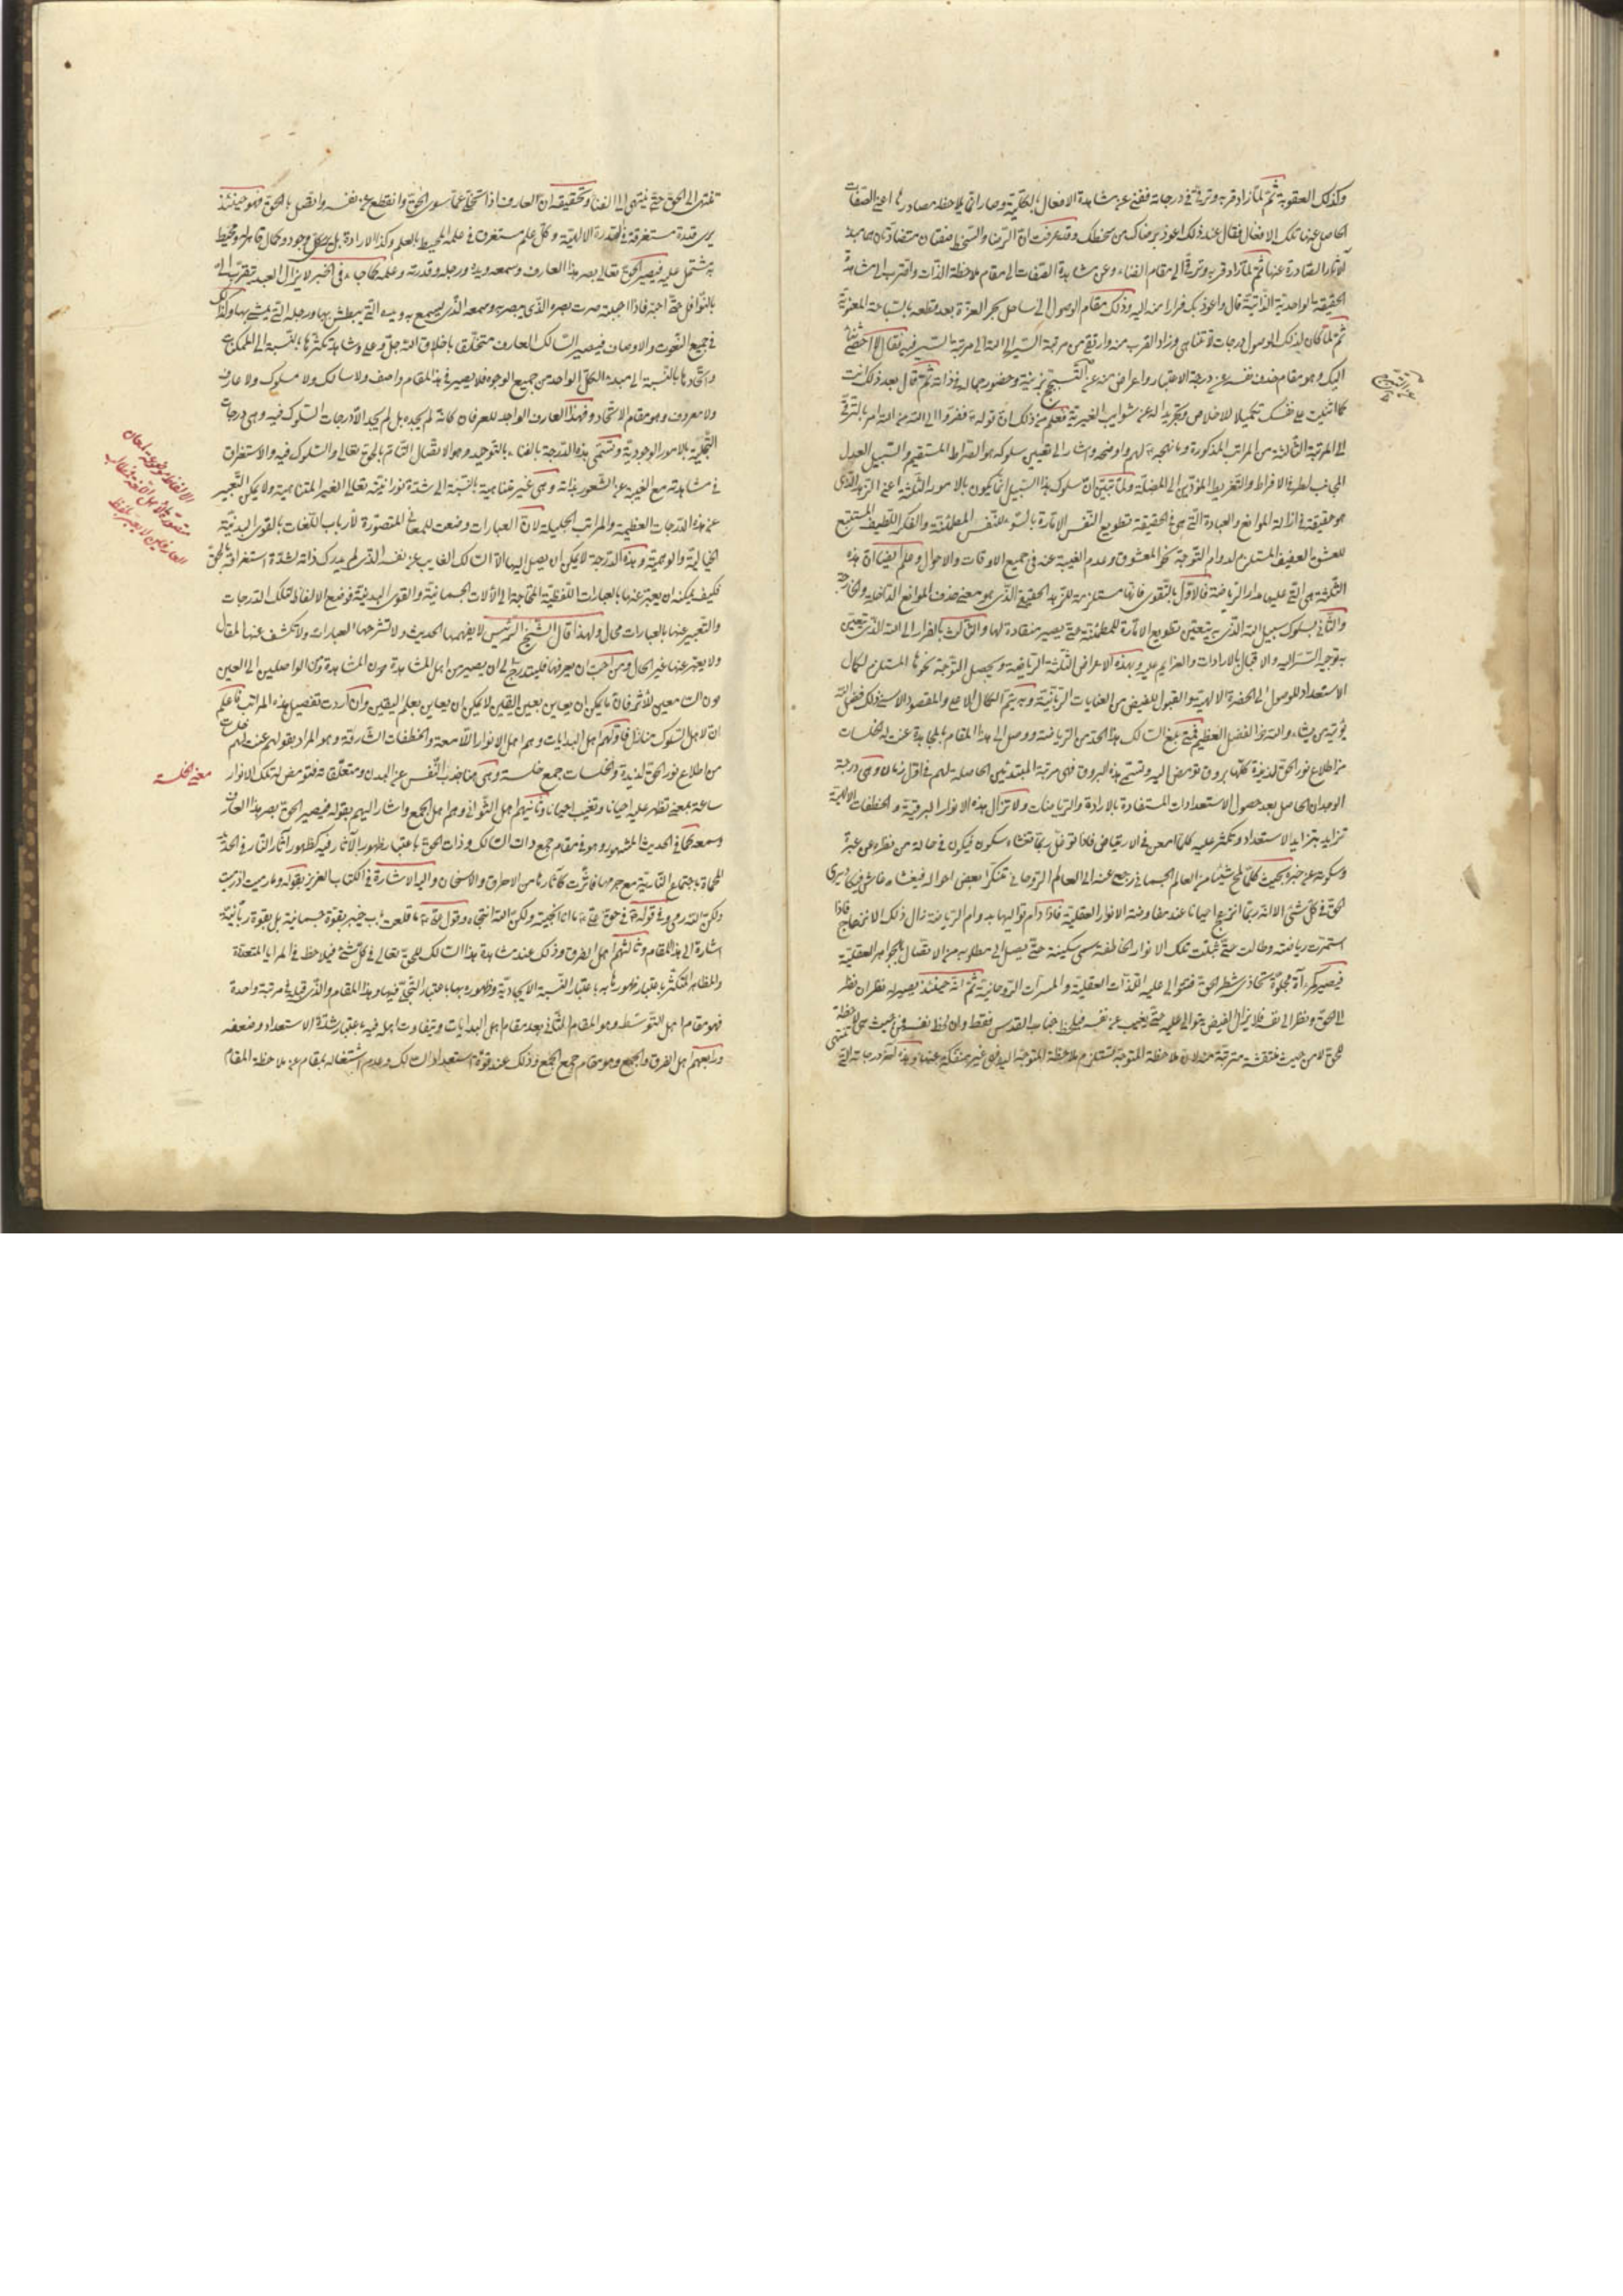 وكذلك العقوبة ثم لما زاد قربه وترقى في درجاته ففنى عن مشاهدة الافعال بالكلية وصار الى ملاحظة مصادرها اعنى الصفات
الحاصل عنها تلك الافعال فقال عند ذلك اعوذ برضاك من سخطك وقد عرفت ان الرضا والسخط صفتان متضادتان
للآثار الصادرة عنها ثم لما زاد قربه وترقى الى مقام الفناء وعن مشاهدة الصفات الى مقام ملاحظة الذات واقترب الى مشاهدة
الحقيقة بالواحدية الذاتية قال واعوذ بك فرارا منه اليه وذلك مقام الوصول الى ساحل بحر العزة بعد قطعه بالسباحة المعنوية
ثم لما كان لذلك الوصول درجات لا تتناهى وزاد القرب منه وارتقى من مرتبة السير الى الله الى مرتبة السير فيه فقال لا احصى ثناء
عليك وهو مقام حذف نفسه عن درجة الاعتبار واعراض منه عن وحضور جماله في ذاته ثم قال بعد ذلك انت
كما اثنيت على نفسك تكميلا للاخلاص وتجريدا له عن شوايب الغيرية فعلم من ذلك ان قوله ففروا الى الله من الله امر بالترقى
الى المرتبة الثالثة من المراتب المذكورة وما نهجه لهم واوضحه واشار الى تعيين سلوكه هو الصراط المستقيم والسبيل العدل
المجانب لطرفى الافراط والتفريط المؤديين الى المضلة ولما تبين ان سلوك هذا السبيل انما يكون بالامور الثلثة اعنى الزهد الذى
هو حقيقة في ازالة الموانع والعبادة التى هى في الحقيقة تطويع النفس الامارة بالسوء للنفس المطمئنة والفكر اللطيف المستتبع
للعشق العفيف المستلزم لدوام التوجه نحو المعشوق وعدم الغيبة عنه في جميع الاوقات والاحوال وعلم ايضا ان هذه
الثلثة هى التى عليها مدار الرياضة فالاول بالتقوى فانها مستلزمة للزهد الحقيقى الذى هو معنى حذف الموانع الداخلة والخارجة
والثانى بسلوك سبيل الله الذى به يتعين تطويع الامارة للمطمئنة حتى يصير منقادة لها والثالث بالفرار الى الله الذى يتعين
به توجيه السر اليه والاقبال بالارادات والعزايم عليه وبهذه الاعراض الثلثة الرياضة ويحصل التوجه نحوها المستلزم لكمال
الاستعداد للوصول الى الحضرة الالهية والقبول للفيض من العنايات الربانية وبه يتم الكمال الاعلى والمقصد الاسنى ذلك فضل الله
يؤتيه من يشاء والله ذو الفضل العظيم فمتى بلغ السالك هذا الحد من الرياضة ووصل الى هذا المقام بالمجاهدة عنت له خلسات
من اطلاع نور الحق لذيذة كانها بروق تومض اليه وتسمى هذه البروق فهى مرتبة المبتدئين الحاصلة لهم في اقل زمان وهى درجة
الوجدان الحاصل بعد حصول الاستعدادات المستفادة بالارادة والرياضات ولا تزال هذه الانوار البرقية والخطفات الالهية
تزايد بتزايد الاستعداد وتكثر عليه كلما امعن في الارتياض فاذا توغل ربما تغشاه سكون فيكون في حالة من نظره عن عبرة
وسكوته عن خبره بحيث كلما لمح شيئا من العالم الجسمانى رجع عنه الى العالم الروحانى فتذكر بعض احواله فيغشاه غاش فيكاد يرى
الحق في كل شئ الا انه ربما انزعج احيانا عند مفاوضة الانوار العقلية فاذا دام تواليها بدوام الرياضة زال ذلك الانزعاج فاذا
استمرت رياضته وطالت حتى ثبتت تلك الانوار الخاطفة سمى سكينة حتى يصل الى مطلوبه من الاتصال بالجواهر العقلية
فيصير كمرآة مجلوة يحاذى شطر الحق فتتوالى عليه اللذات العقلية والمسرات الروحانية ثم انه حينئذ يصير له نظران نظر
الى الحق ونظر الى نفسه فلا يزال الفيض يتوالى عليه حتى يغيب عن نفسه فيلحظ جناب القدس فقط وان لحظ نفسه فمن حيث هى لاحظة
للحق لا من حيث منتقشة مترتبة عنه لان ملاحظة المتوجه تستلزم ملاحظة المتوجه اليه فهى غير منفكة عنها وهذه آخر درجاته التى
تنتهى
تنتهى الى الحق حتى ينتهى الى الفناء وتحقيقه ان العارف اذا تخلى عما سوى الحق وانقطع عن نفسه واتصل بالحق فهو حينئذ
يرى كل قدرة مستغرقة في القدرة الالهية وكل علم مستغرق في علمه المحيط بالعلم وكذا الارادة بل يرى كل وجود وكمال
مشتمل عليه فيصير الحق تعالى بصر هذا العارف وسمعه ويده ورجله وقدرته وعلمه كما جاء في الخبر لا يزال العبد يتقرب الى
بالنوافل حتى احبه فاذا احببته صرت بصره الذى يبصر به وسمعه الذى يسمع به ويده التى يبطش بها ورجله التى يمشى بها وكذلك
في جميع النعوت والاوصاف فيصير السالك العارف متخلقا باخلاق الله جل وعلى وشاهد تكثرها بالنسبة الى الممكنات
واتحادها بالنسبة الى مبدء الكل الواحد من جميع الوجوه فلا يصير في هذا المقام واصف ولا سالك ولا مسلوك ولا عارف
ولا معروف وهو مقام الاتحاد فهذا العارف الواجد للعرفان كانه لم يجده بل لم يجد الا درجات السلوك فيه وهى درجات
التحلية بالامور الوجودية وتسمى هذه الدرجة بالفناء بالتوحيد وهو الاتصال التام بالحق تعالى والسلوك فيه والاستغراق
في مشاهدته مع الغيبة عن الشعور بذاته وهى غير متناهية بالنسبة الى شدة نورانيته تعالى الغير المتناهية ولا يمكن التعبير
عن هذه الدرجات العظيمة والمراتب الجليلة لان العبارات وضعت للمعانى المتصورة لأرباب اللغات بالقوى البدنية
الخيالية والوهمية وهذه الدرجة لا يمكن ان يصل اليها الا السالك الغايب عن نفسه الذى لم يدرك ذاته لشدة استغراقه بالحق
فكيف يمكنه ان يعبر عنها بالعبارات اللفظية المحتاجة الى الآلات الجسمانية والقوى البدنية فوضع الالفاظ لتلك الدرجات
والتعبير عنها بالعبارات محال ولهذا قال الشيخ الرئيس لا يفهمها الحديث ولا تشرحها العبارات ولا يكشف عنها المقال
ولا يعبر عنها غير الحال ومن احب ان يعرفها فليتدرج الى ان يصير من اهل المشاهدة دون المشافهة ومن الواصلين الى العين
دون السامعين للأثر فان ما يمكن ان يعاين بعين اليقين لا يمكن ان يعاين بعلم اليقين وان اردت تفصيل هذه المراتب فاعلم
ان لاهل السلوك منازل فاولهم اهل البدايات وهم اهل الانوار اللامعة والخطفات الشارقة وهو المراد بقولهم عنت لهم خلسات
من اطلاع نور الحق لذيذة والخلسات جمع خلسة وهى انجذاب النفس عن البدن ومتعلقاته فتومض له تلك الانوار
ساعة بمعنى تظهر عليه احيانا وتغيب احيانا وثانيهم اهل الثوانى وهم اهل الجمع واشار اليهم بقوله فيصير الحق بصر هذا العارف
وسمعه كما في الحديث المشهور وهو في مقام جمع ذات السالك وذات الحق باعتبار ظهور الآثار فيه كظهور آثار النار في الحديدة
المحماة باجتماع النارية مع جرمها فاثرت كآثارها من الاحراق والاسخان واليه الاشارة في الكتاب العزيز بقوله وما رميت اذ رميت
ولكن الله رمى وفي قوله في حق على ما انا انتجيته ولكن الله انتجاه وقول على ما قلعت باب خيبر بقوة جسمانية بل بقوة ربانية
اشارة الى هذا المقام وثالثهم اهل الفرق وذلك عند مشاهدة هذا السالك للحق تعالى في كل شئ فيلاحظ في المرايا المتعددة
والمظاهر المتكثرة باعتبار ظهورها به باعتبار النسبة الايجادية وظهوره بها باعتبار التجلى فيها وهذا المقام والذى قبله في مرتبة واحدة
فهو مقام اهل التوسط وهو المقام الثانى بعد مقام اهل البدايات ويتفاوت اهله فيه باعتبار شدة الاستعداد وضعفه
ورابعهم اهل الفرق والجمع وهو مقام جمع الجمع وذلك عند قوة استعداد السالك وعدم اشتغاله بمقام عن ملاحظة المقام
معنى الخلسة